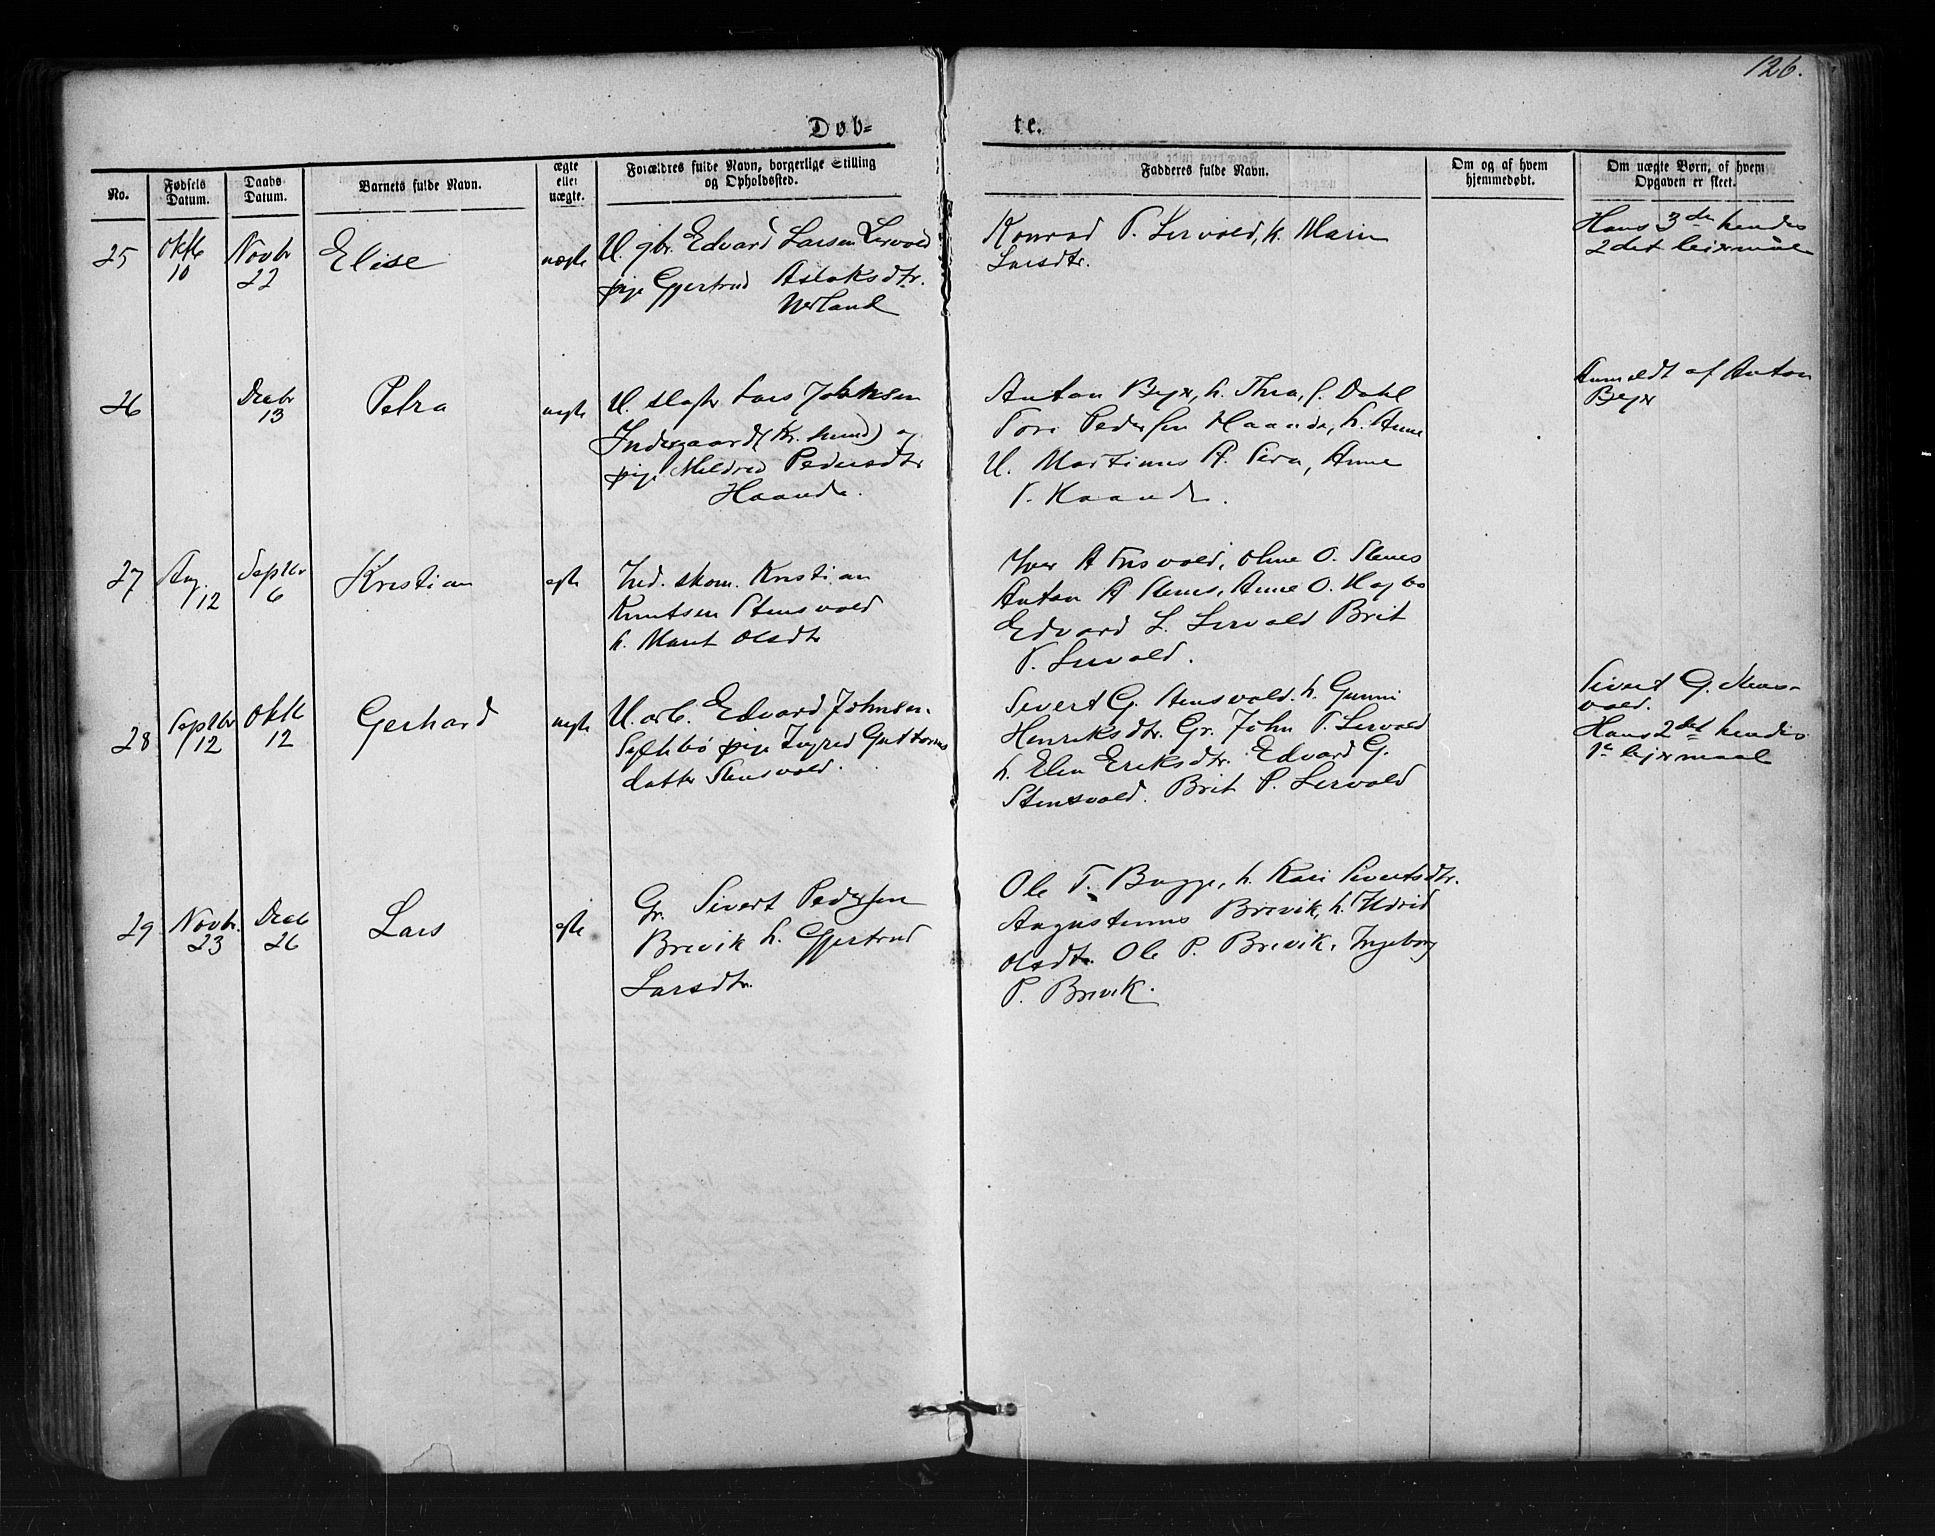 126.
Døb=
te.
No.
Fødsels
Datum.
Daabs
Datum.
Barnets fulde Navn.
ægte
eller
uægte.
Forældres fulde Navn, borgerlige Stilling
og Opholdssted.
Fadderes fulde Navn.
Om og af hvem
hjemmedøbt.
Om uægte Børn, af hvem
Opgaven er skeet.
25
Oktb
10
Novbr
22
Elise
uægte
U. gbr. Edvard Larsen Lervold
pige Gjertrud Aslaksdtr.
Konrad P. Lervold, k. Marie
Larsdtr.
Hans 3de hendes
2det leiermaal
26
Decbr
13
Petra
uegte
U. Lars Johnsen
Indergaard (Kr. sund) og
pige Mildrid Pedersdtr
Haande.
Anton Beyer, h. Thea, f. Dahl
Tore Pedersen Haande, h. Anne
U. Martinus A. Anne
P. Haande.
Anmeldt af Anton
Beyer
27
Aug.
12
Septbr
6
Kristian
egte
Ind. skom. Kristian
Knutsen Stensvold
h. Marit Olsdtr
Iver A O. Stenes
Anton A Stenes, Anne O.
Edvard L. Lervold Brit
P. Lervold.
28
Septbr
12
Oktb
12
Gerhard
uegte
U. arb. Edvard Johnsen
pige Ingred Guttorms
datter Stensvold.
Sivert G. Stensvold. h. Gunni
Henriksdtr. Gr. John P. Lervold
h. Elen Eriksdtr. Edvard G.
Stensvold. Brit P. Lervold
Sivert G. Stens-
vold.
Hans 2det hendes
1e leiermaal
29
Novbr.
23
Decb
26
Lars
egte
Gr. Sivert Pedersen
Brevik h. Gjertrud
Larsdtr.
Ole T. Bugge, h. Kari Sivertsdtr.
Augustinus Brevik, h. Ildrid
Olsdtr. Ole P. Brevik, Ingeborg
P. Brevik.